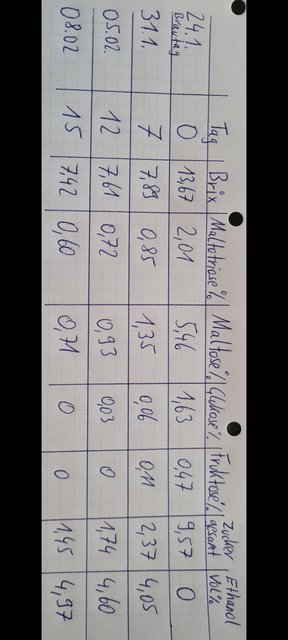 Tag Brix Maltotriose% Maltose% Glukose% Fruktose% Zucker gesamt Ethanol Vol%
24.1. Brautag 0 13,67 2,01 5,46 1,63 0,47 9,57 0
31.1. 7 7,89 0,85 1,35 0,06 0,11 2,37 4,05
05.02. 12 7,61 0,72 0,93 0,03 0 1,74 4,60
08.02 15 7,42 0,60 0,71 0 0 1,45 4,97